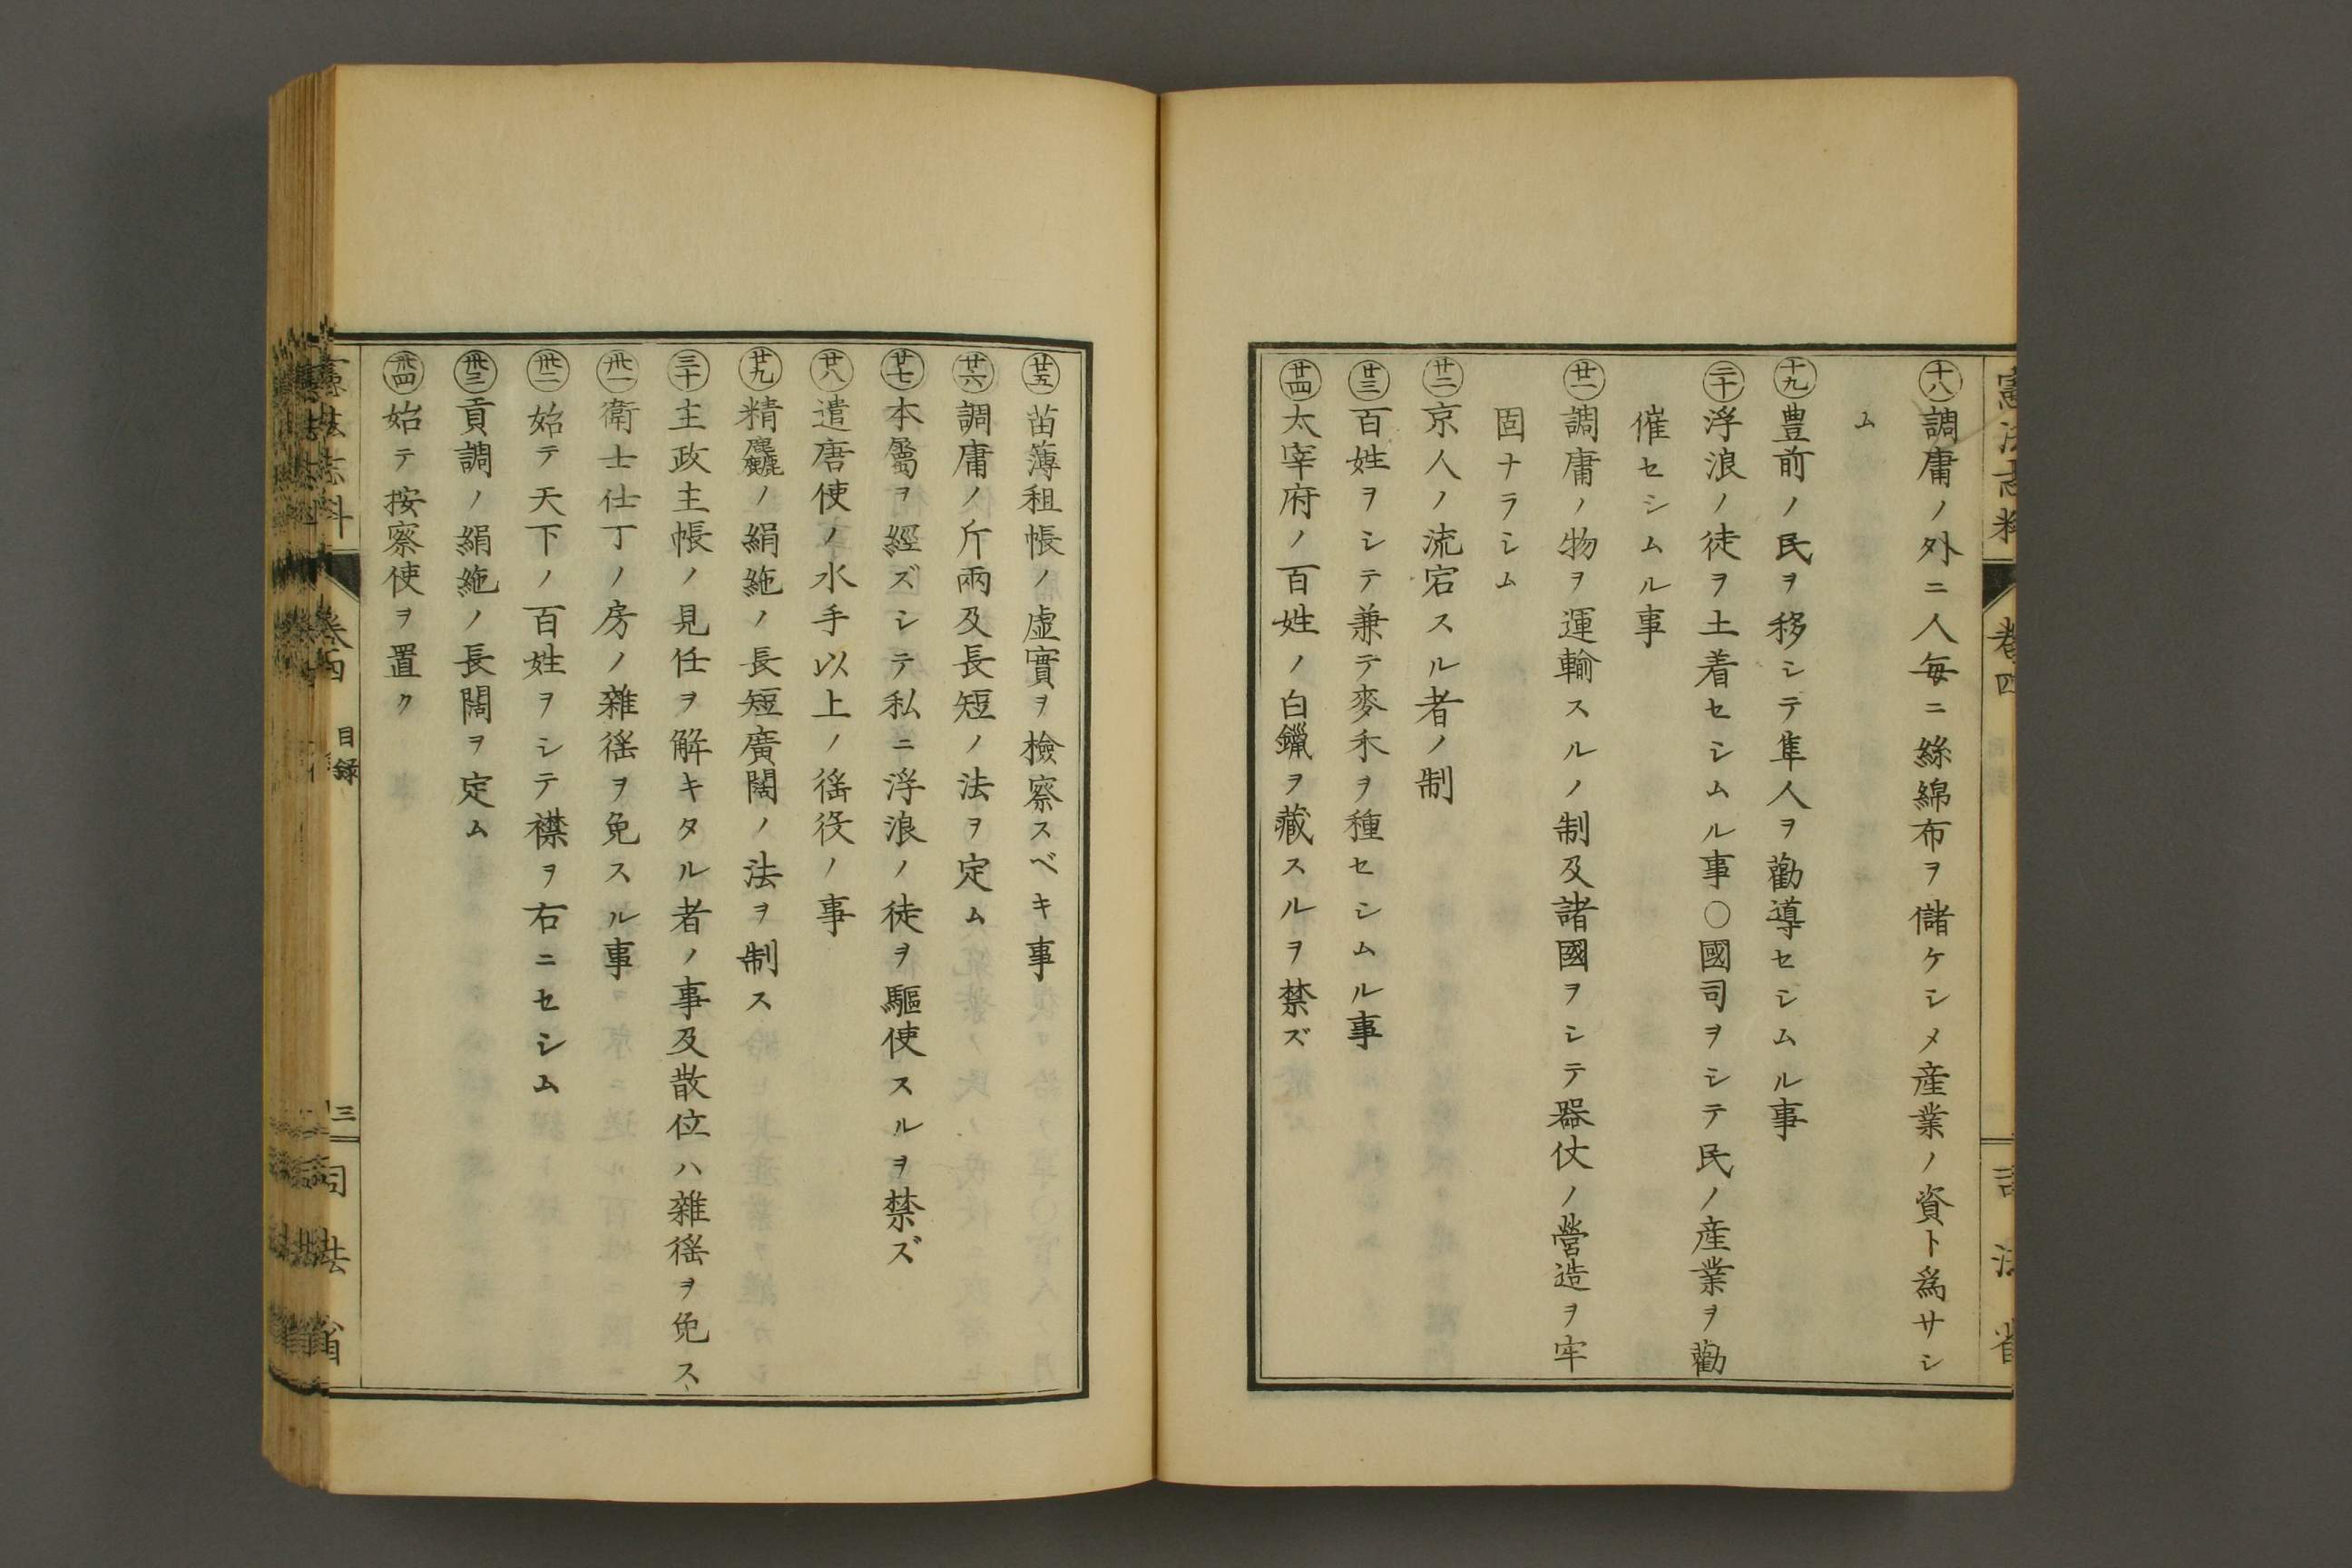 憲法志料
卷四
司法省
十八調庸ノ外ニ人每ニ絲綿布ヲ儲ケシメ產業ノ資ト爲サシ
ム
十九豊前ノ民ヲ移シテ隼人ヲ勸導セシムル事
二十浮浪ノ徒ヲ土着セシムル事○國司ヲシテ民ノ產業ヲ勸
催セシムル事
廿一調庸ノ物ヲ運輸スルノ制及諸國ヲシテ器仗ノ營造ヲ牢
固ナラシム
廿二京人ノ流宕スル者ノ制
廿三百姓ヲシテ兼テ麥禾ヲ種セシムル事
廿四太宰府ノ百姓ノ白鑞ヲ藏スルヲ禁ズ
廿五苗薄租帳ノ虛實ヲ檢察スベキ事
廿六調庸ノ斤兩及長短ノ法ヲ定ム
廿七本屬ヲ經ズシテ私ニ浮浪ノ徒ヲ驅使スルヲ禁ズ
廿八遣唐使ノ水手以上ノ徭役ノ事
廿九精麤ノ絹絁ノ長短廣闊ノ法ヲ制ス
三十主政主帳ノ見任ヲ解キタル者ノ事及散位ハ雜徭ヲ免ス
卅一衛士仕丁ノ房ノ雜徭ヲ免スル事
卅二始テ天下ノ百姓ヲシテ襟ヲ右ニセシム
卅三貢調ノ絹絁ノ長闊ヲ定ム
卅四始テ按察使ヲ置ク
憲法志料
卷四
目錄
三
司法省